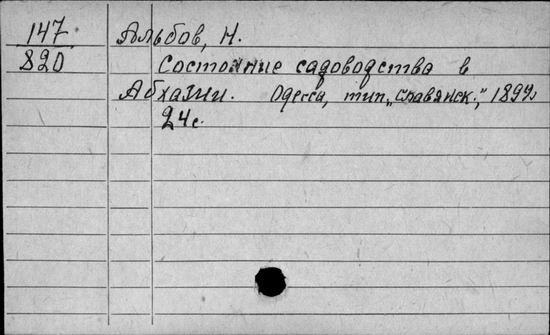 147
820
Альбов, Н.
Состояние садоводства в
Абхазии. Одесса, тип. „Славянск.", 1894
24с.